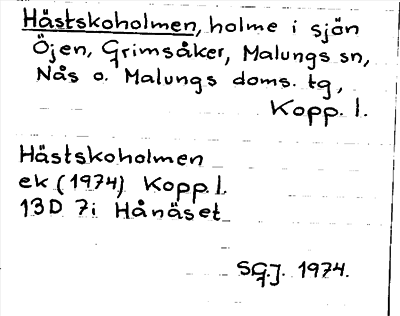 Hästskoholmen, holme i sjön
Öjen, Grimsåker, Malungs sn,
Nås o. Malungs doms. tg,
Kopp. l.
Hästskoholmen
ek (1974) Kopp. l.
13D 7i Hånäset
SGJ. 1974.